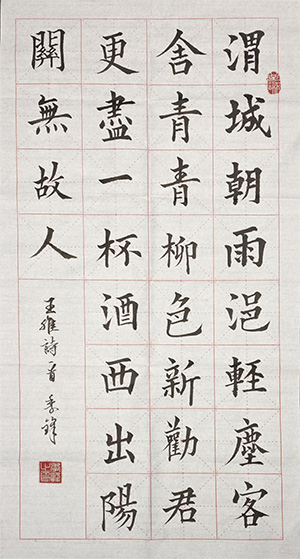 渭城朝雨浥輕塵客
舍青青柳色新勸君
更盡一杯酒西出陽
關無故人
王維詩一首 季鋒